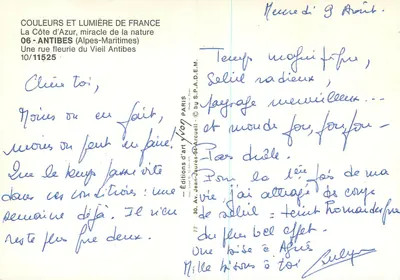 COULEURS ET LUMIÈRE DE FRANCE
La Côte d'Azur, miracle de la nature
06 - ANTIBES (Alpes-Maritimes)
Une rue fleurie du Vieil Antibes
10/11525
Chère toi,
Moins on en fait,
moins on peut en faire.
Que le temps passe vite
dans ces conditions : une
semaine déjà. Il n'en
reste plus que deux.
Editions d'art yvon PARIS
S.P.A.D.E.M.
Mercredi 9 Août.
Temps magnifique,
Soleil radieux,
paysage merveilleux...
et monde fou, fou, fou -
Pas drôle.
Pour la 1ère fois de ma
vie, j'ai attrapé des coups
de soleil = teint
du plus bel effet.
Une bise à Agnès
Mille bisous à toi